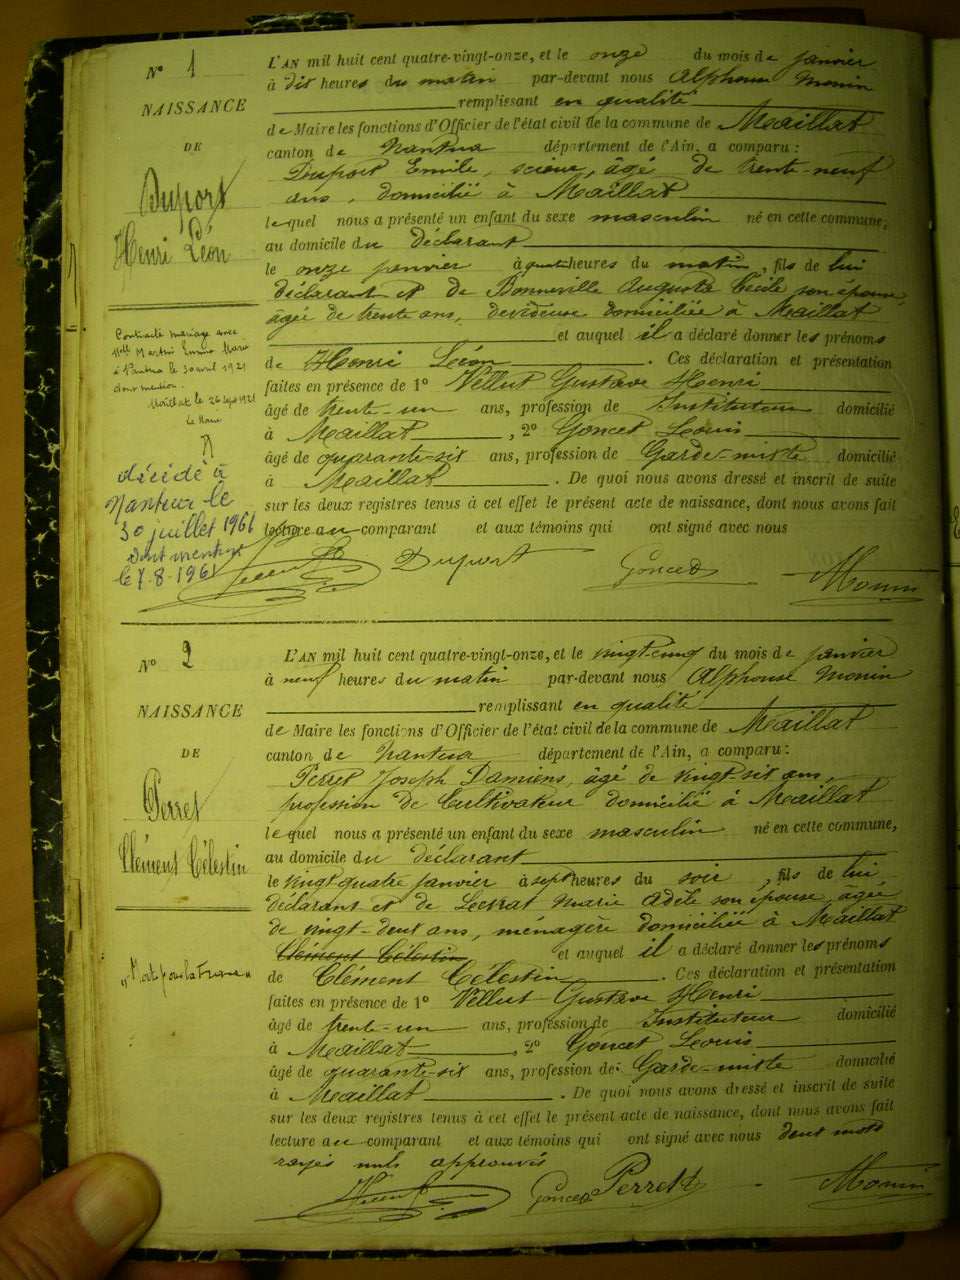 N° 1
NAISSANCE
DE
Duport
Henri Léon
Contracté mariage avec
Melle Martin Emma Marie
à Nantua le 30 avril 1921
dont mention.
Maillat le 26 sept 1921
Le Maire
décédé à
Nantua le
30 juillet 1961
dont mention
le 7.8.1961
L'AN mil huit cent quatre-vingt-onze, et le onze du mois de janvier
à dix heures du matin par-devant nous Alphonse Monin
remplissant en qualité
de Maire les fonctions d'Officier de l'état civil de la commune de Maillat
canton de Nantua département de l'Ain, a comparu :
Duport Emile, scieur, âgé de trente-neuf
ans, domicilié à Maillat
lequel nous a présenté un enfant du sexe masculin né en cette commune,
au domicile du déclarant
le onze janvier à quatre heures du matin, fils de lui
déclarant et de Bonneville Augusta Cécile son épouse,
âgée de trente ans, dévideuse domiciliée à Maillat
et auquel il a déclaré donner les prénoms
de Henri Léon. Ces déclaration et présentation
faites en présence de 1° Vellut Gustave Henri
âgé de trente-un ans, profession de Instituteur domicilié
à Maillat, 2° Goncet Louis
âgé de quarante-six ans, profession de Garde-mixte domicilié
à Maillat. De quoi nous avons dressé et inscrit de suite
sur les deux registres tenus à cet effet le présent acte de naissance, dont nous avons fait
lecture au comparant et aux témoins qui ont signé avec nous
Duport Goncet Monin
N° 2
NAISSANCE
DE
Perret
Clément Célestin
"Mort pour la France"
L'AN mil huit cent quatre-vingt-onze, et le vingt-cinq du mois de janvier
à neuf heures du matin par-devant nous Alphonse Monin
remplissant en qualité
de Maire les fonctions d'Officier de l'état civil de la commune de Maillat
canton de Nantua département de l'Ain, a comparu :
Perret Joseph Damiens, âgé de vingt-six ans,
profession de Cultivateur domicilié à Maillat
lequel nous a présenté un enfant du sexe masculin né en cette commune,
au domicile du déclarant
le vingt quatre janvier à sept heures du soir, fils de lui
déclarant et de Marie Adèle son épouse, âgée
de vingt-deux ans, ménagère domiciliée à Maillat
Clément Célestin et auquel il a déclaré donner les prénoms
de Clément Célestin. Ces déclaration et présentation
faites en présence de 1° Vellut Gustave Henri
âgé de trente-un ans, profession de Instituteur domicilié
à Maillat, 2° Goncet Louis
âgé de quarante-six ans, profession de Garde-mixte domicilié
à Maillat. De quoi nous avons dressé et inscrit de suite
sur les deux registres tenus à cet effet le présent acte de naissance, dont nous avons fait
lecture au comparant et aux témoins qui ont signé avec nous deux mots
rayés nuls approuvés
Goncet Perret Monin